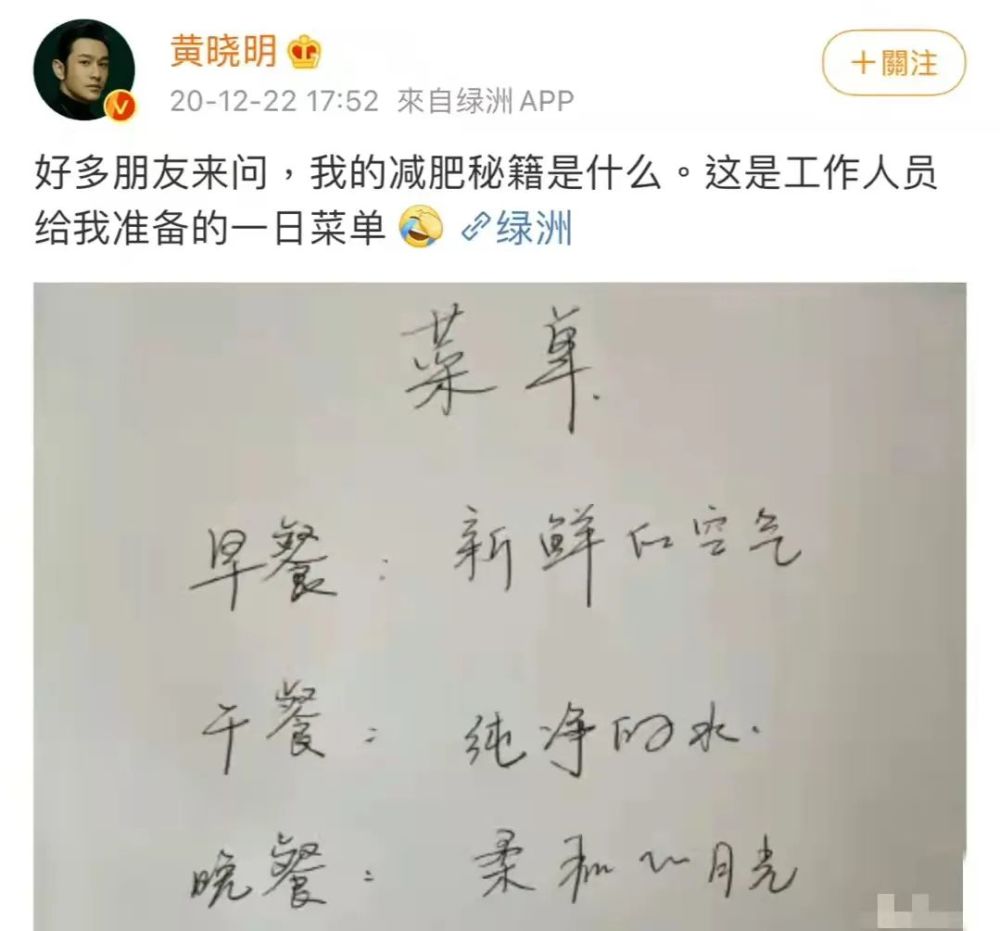 黄晓明
+關注
20-12-22 17:52 來自绿洲APP
好多朋友来问，我的减肥秘籍是什么。这是工作人员
给我准备的一日菜单 绿洲
菜单.
早餐: 新鲜的空气
午餐: 纯净的水.
晚餐: 柔和的月光